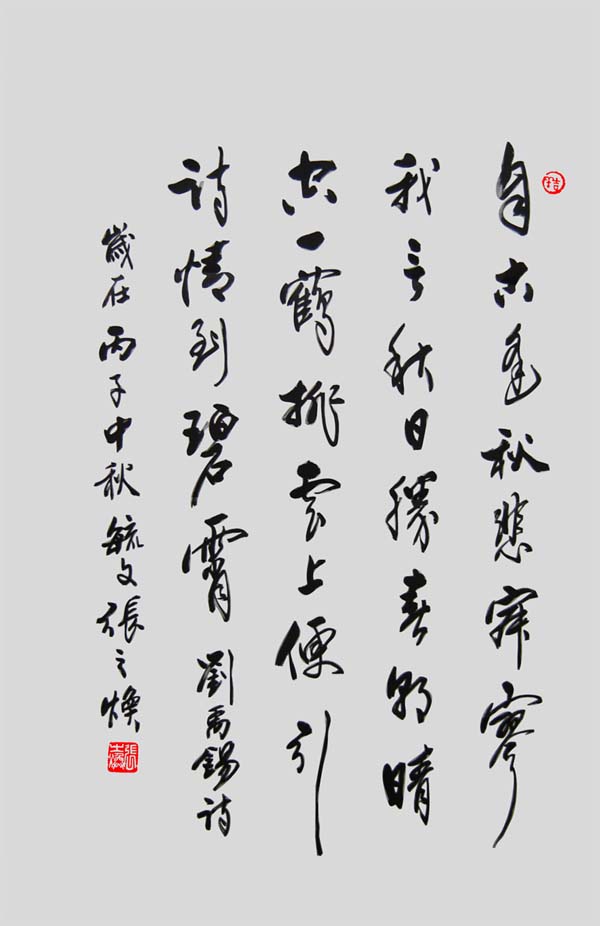 自古逢秋悲寂寥
我言秋日勝春朝晴
空一鶴排雲上便引
詩情到碧霄 劉禹錫詩
歲在丙子中秋毓文張之煥